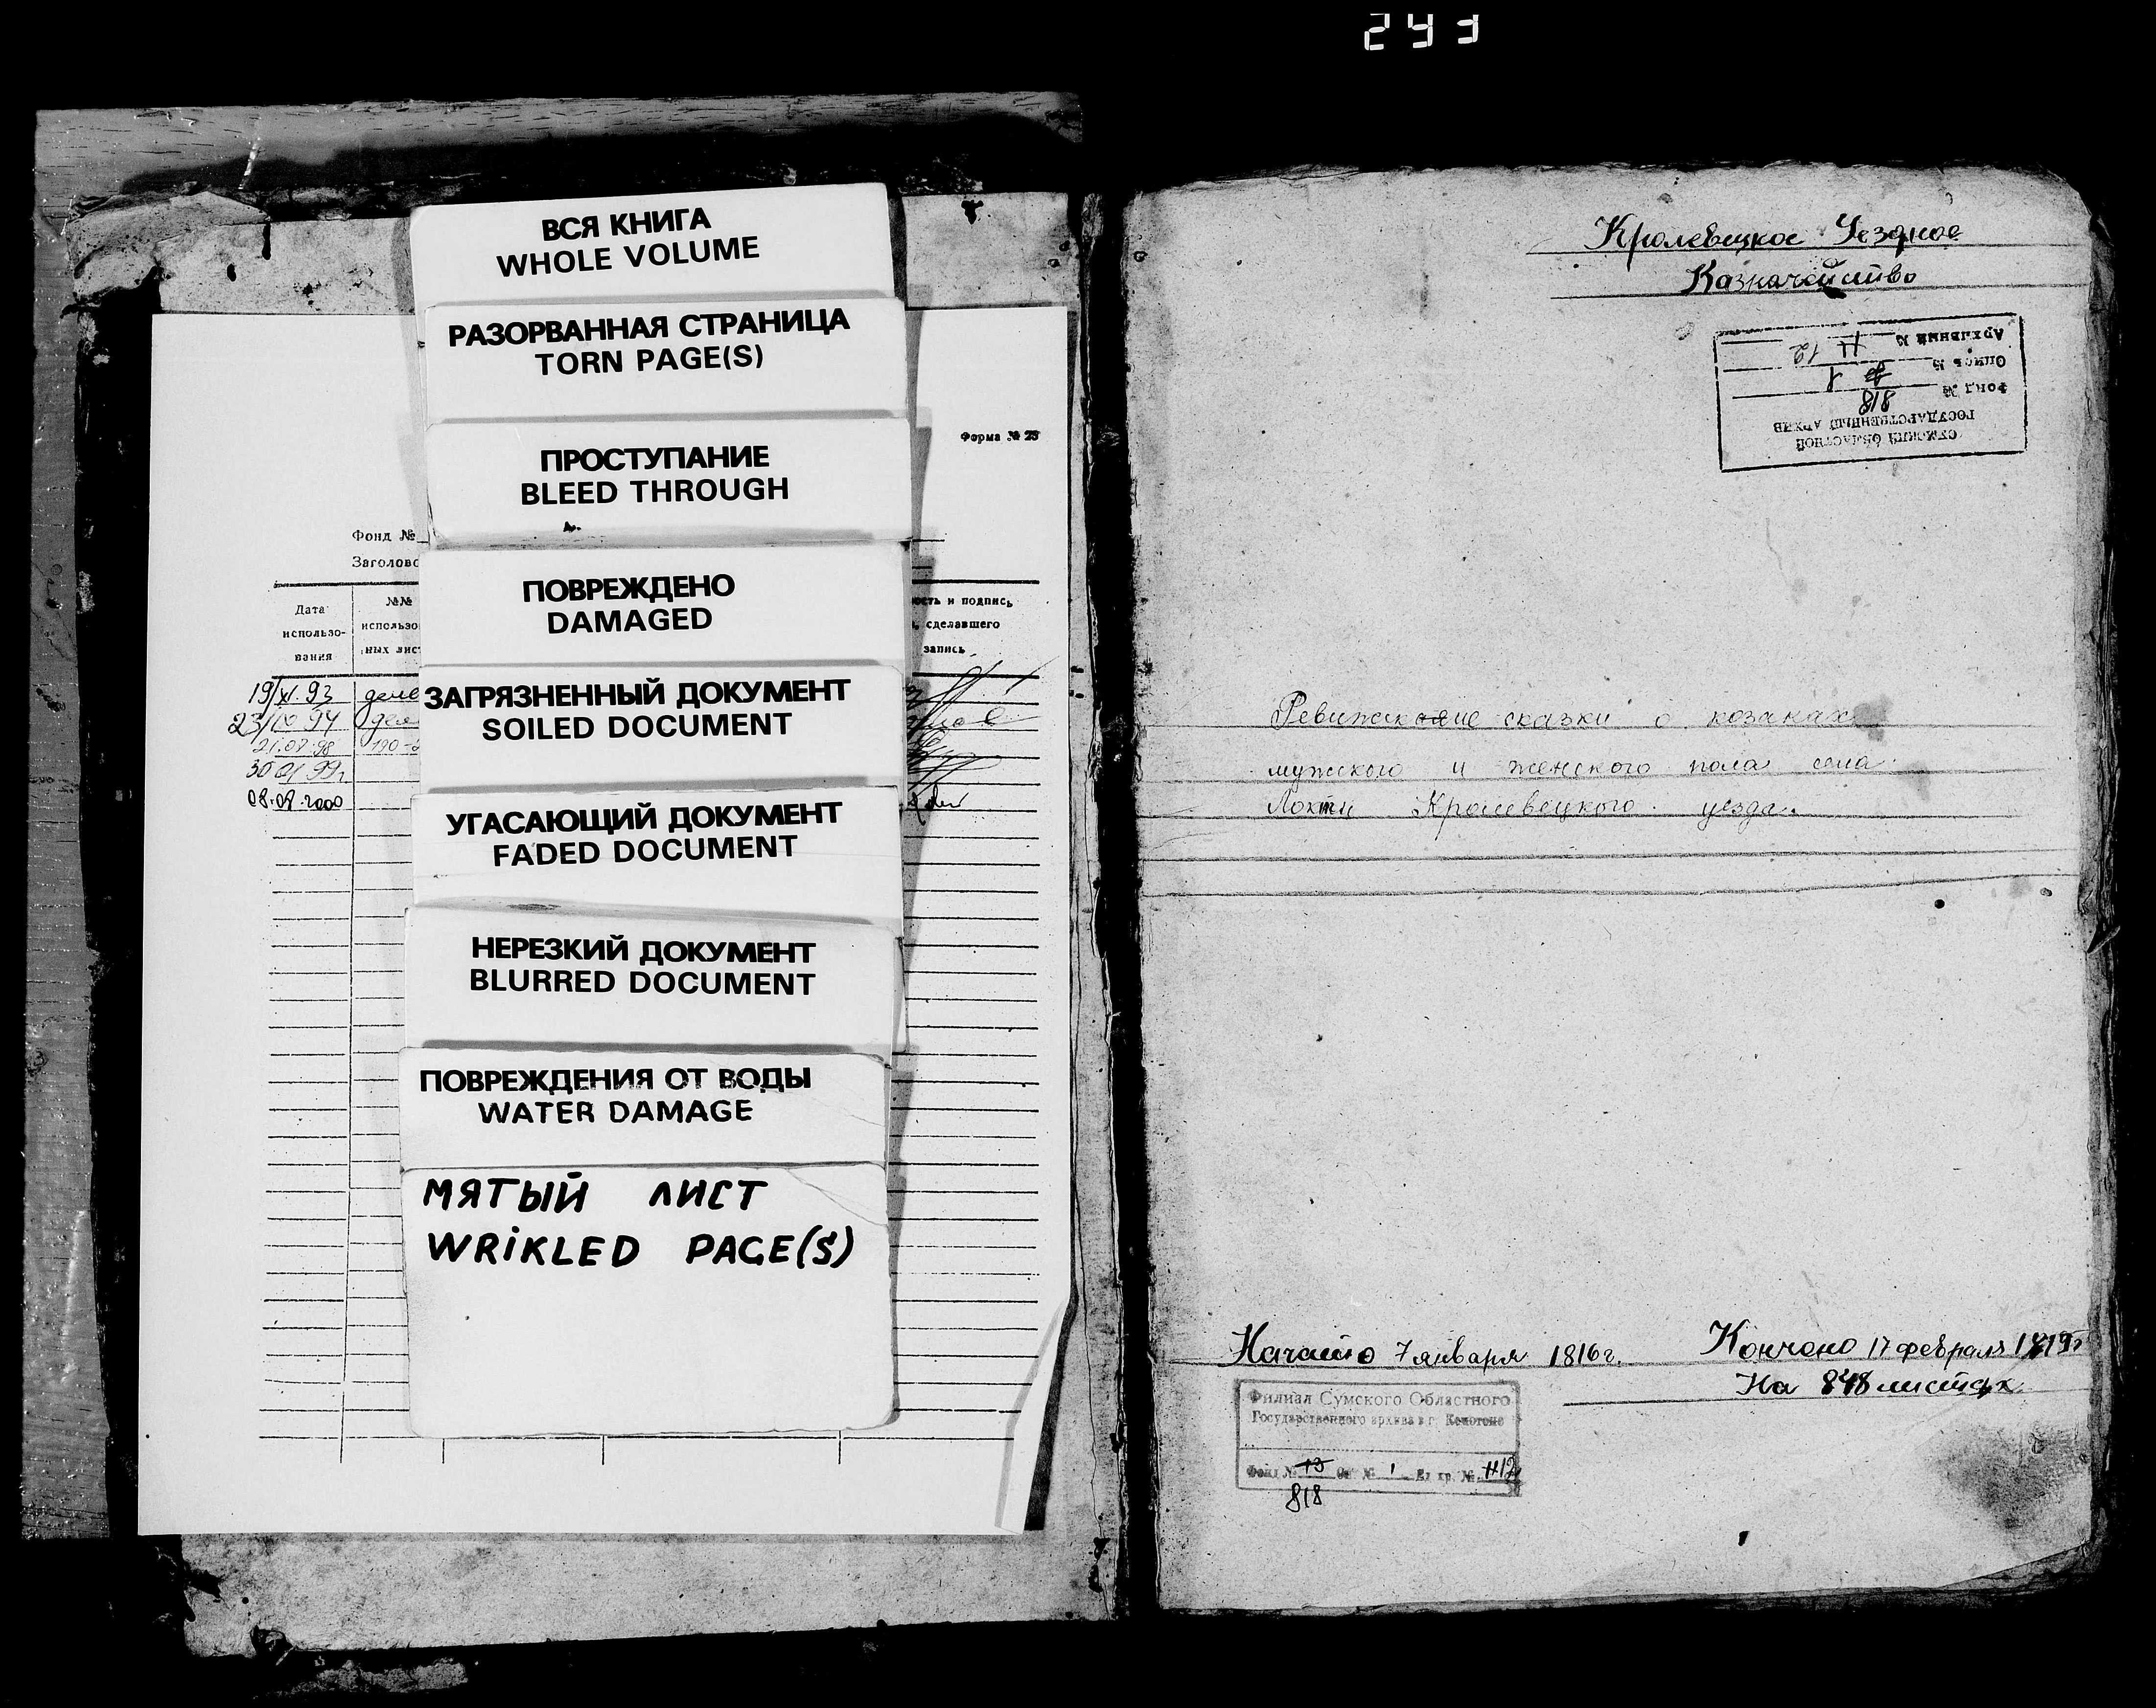 243
ВСЯ КНИГА
WHOLE VOLUME
РАЗОРВАННАЯ СТРАНИЦА
TORN PAGE(S)
ПРОСТУПАНИЕ
BLEED THROUGH
ПОВРЕЖДЕНО
DAMAGED
ЗАГРЯЗНЕННЫЙ ДОКУМЕНТ
SOILED DOCUMENT
УГАСАЮЩИЙ ДОКУМЕНТ
FADED DOCUMENT
НЕРЕЗКИЙ ДОКУМЕНТ
BLURRED DOCUMENT
ПОВРЕЖДЕНИЯ ОТ ВОДЫ
WATER DAMAGE
МЯТЫЙ ЛИСТ
WRIKLED PAGE(S)
Форма № 23
Фонд №
Заголово
Дата
использо-
вания
№№
использо
ных лис
и подпись
сделавшего
запись
19/XI.93
23/10 94
21.07.98
30 01 99г
08.08.2000
Кролевецкое Уездное
Казначейство
СУМСКИЙ ОБЛАСТНОЙ
ГОСУДАРСТВЕННЫЙ АРХИВ
Фонд № 818
Опись № 1
Архивный № 12
Ревижские сказки о козаках
мужского и женского пола села
Локти Кролевецкого уезда.
Начато 7 января 1816г.
Кончено 17 февраля 1819г
На 848 листах
Филиал Сумского Областного
Государственного архива в г. Конотопе
Фонд № 13 Оп № 1 Ед хр. № 12
818